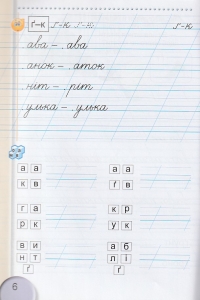 ґ–к ґ–к ґ–к ґ–к
.ава – .ава
.анок – .аток
.ніт – .ріт
.улька – .улька
а а
к в
а а
ґ в
г а
р к
к р
у к
в и
н т
ґ
а б
л і
ґ
6